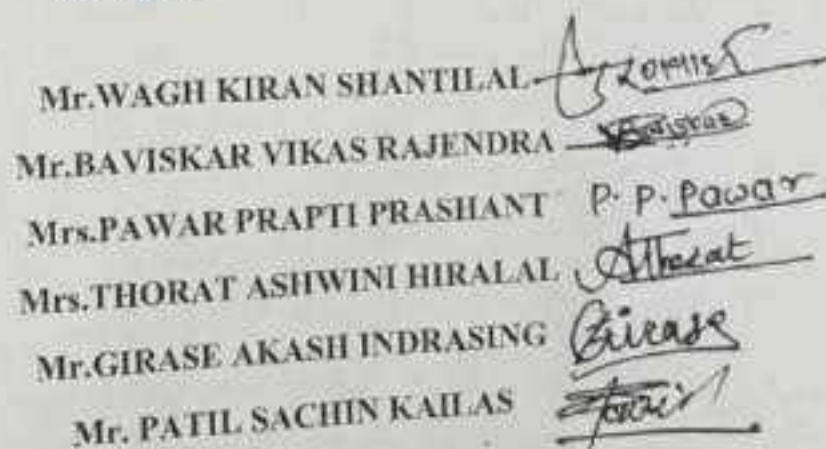 Mr.WAGH KIRAN SHANTILAL
Mr.BAVISKAR VIKAS RAJENDRA
Mrs.PAWAR PRAPTI PRASHANT P. P. Pawar
Mrs.THORAT ASHWINI HIRALAL AThorat
Mr.GIRASE AKASH INDRASING Girase
Mr. PATIL SACHIN KAILAS